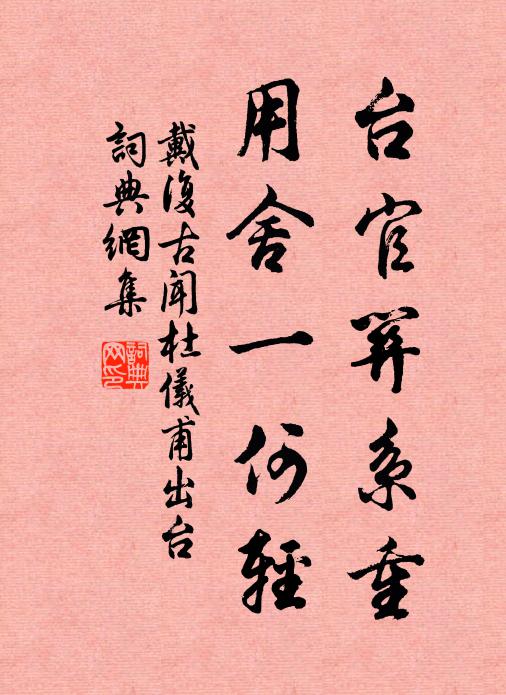 台官關系重
用舍一何輕
戴復古聞杜儀甫出台
詞典網集
詞典网印